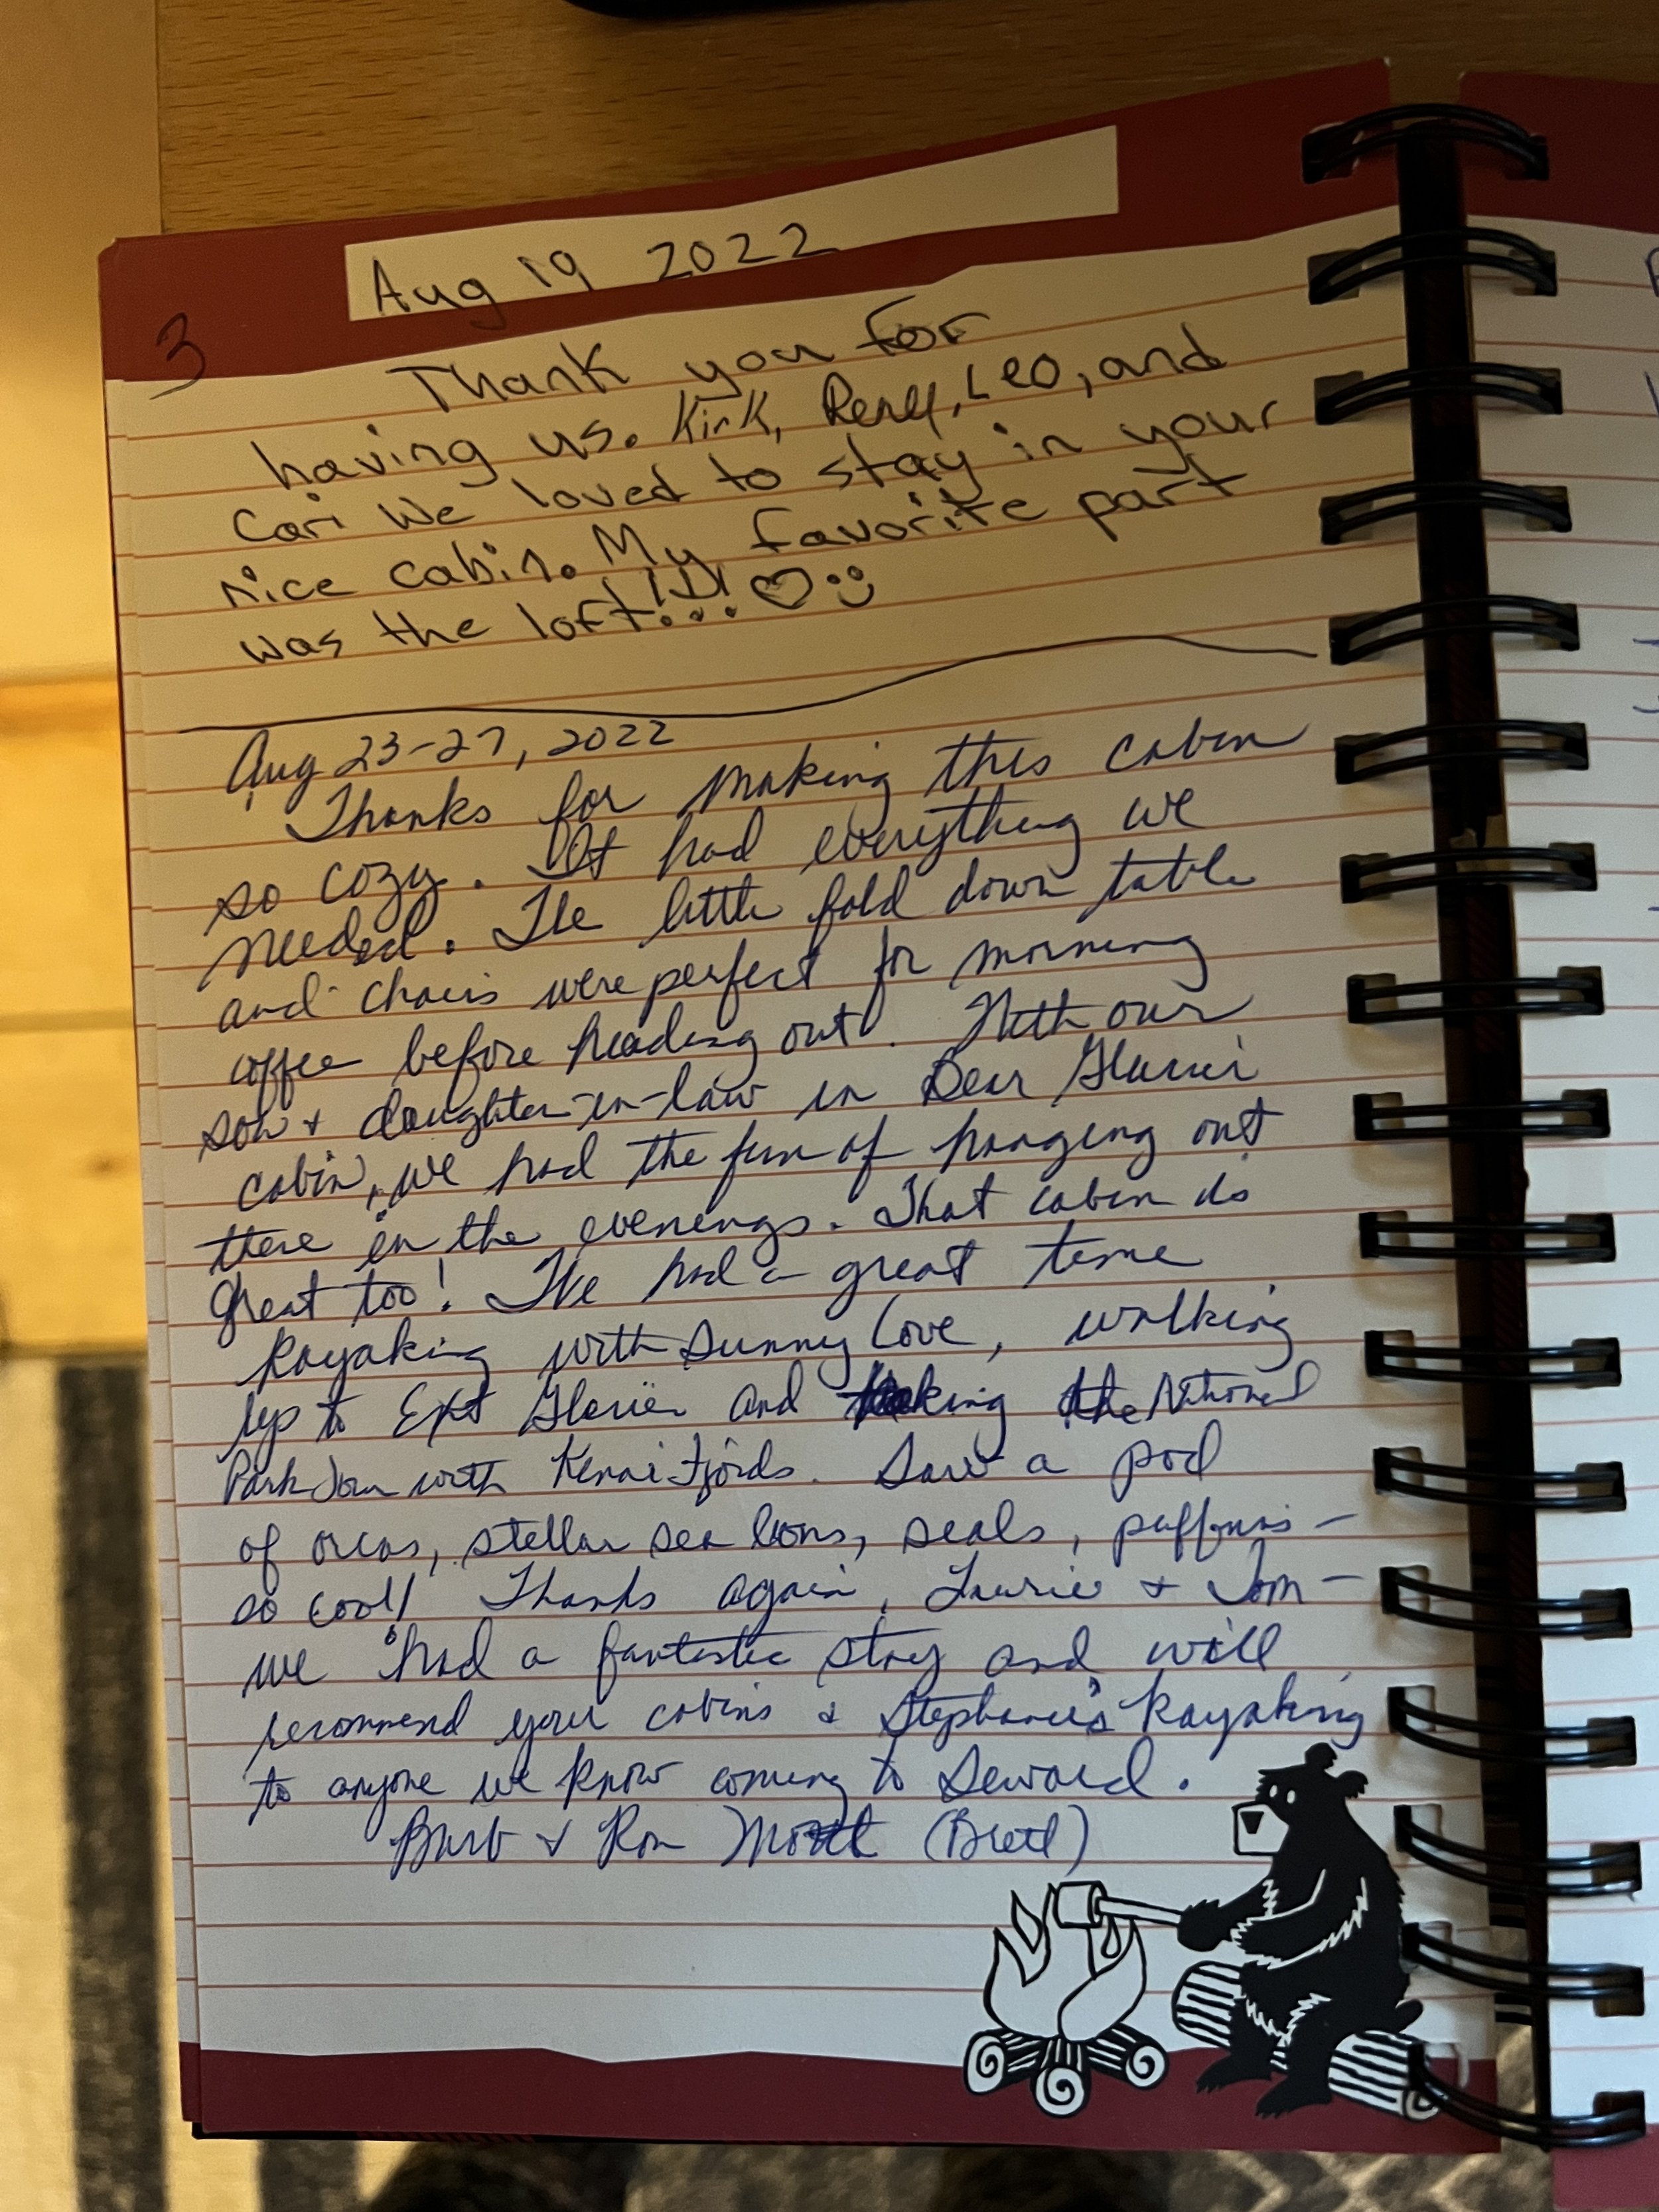 Aug 19 2022
3
Thank you for
having us. Kirk, Leo, and
Cari We loved to stay in your
nice cabin. My favorite part
was the loft!!!
Aug 23-27, 2022
Thanks for making this cabin
so cozy. It had everything we
needed. The little fold down table
and chairs were perfect for morning
coffee before heading out. With our
son + daughter-in-law in Bear Glacier
cabin, we had the fun of hanging out
there in the evenings. That cabin is
great too! We had a great time
kayaking with Sunny Cove, walking
up to Exit Glacier and taking the National
Park Tour with Kenai Fjords. Saw a pod
of orcas, stellar sea lions, seals, puffins -
so cool! Thanks again, Laurie + Tom -
we had a fantastic stay and will
recommend your cabins + Stephanie's kayaking
to anyone we know coming to Seward.
Barb + Ron